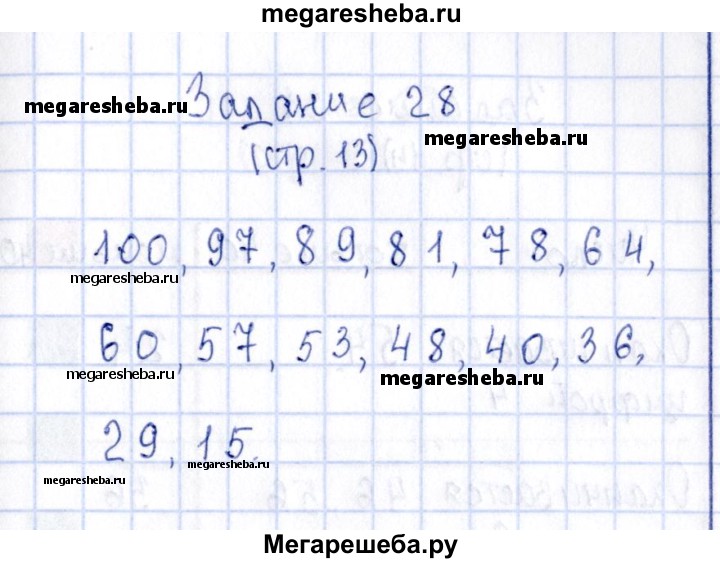 megaresheba.ru
Задание 28
megaresheba.ru
megaresheba.ru
(стр. 13)
100, 97, 89, 81, 78, 64,
megaresheba.ru
60, 57, 53, 48, 40, 36,
megaresheba.ru
megaresheba.ru
29, 15.
megaresheba.ru
megaresheba.ru
Мегарешеба.ру